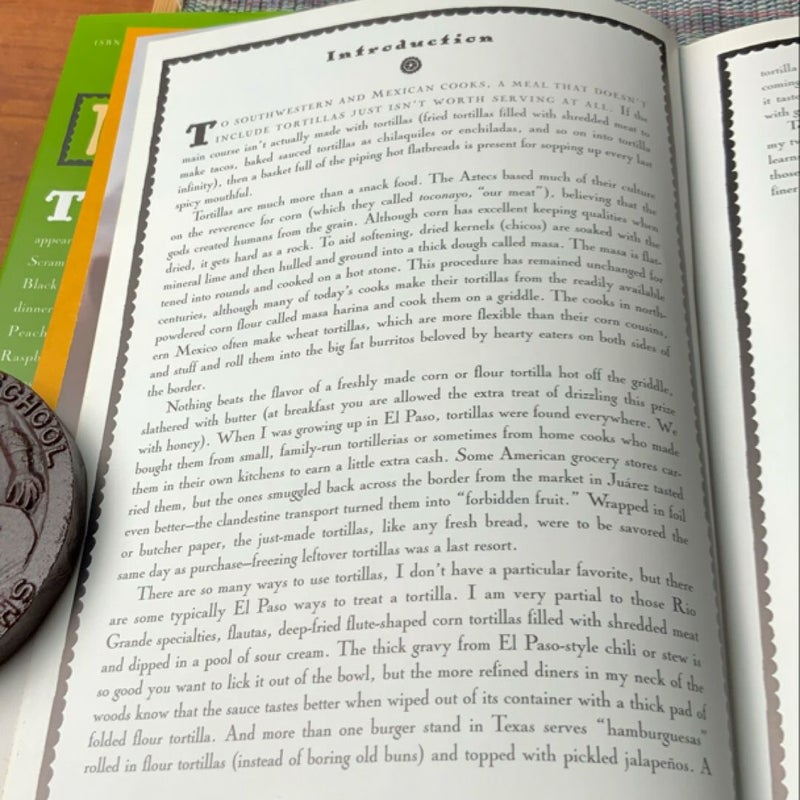 ISBN
T
appear
Scram
Black
dinner
Peach
Raspb
SCHOOL
Introduction
TO SOUTHWESTERN AND MEXICAN COOKS, A MEAL THAT DOESN'T
INCLUDE TORTILLAS JUST ISN'T WORTH SERVING AT ALL. If the
main course isn't actually made with tortillas (fried tortillas filled with shredded meat to
make tacos, baked sauced tortillas as chilaquiles or enchiladas, and so on into tortilla
infinity), then a basket full of the piping hot flatbreads is present for sopping up every last
spicy mouthful.
Tortillas are much more than a snack food. The Aztecs based much of their culture
on the reverence for corn (which they called toconayo, “our meat”), believing that the
gods created humans from the grain. Although corn has excellent keeping qualities when
dried, it gets hard as a rock. To aid softening, dried kernels (chicos) are soaked with the
mineral lime and then hulled and ground into a thick dough called masa. The masa is flat-
tened into rounds and cooked on a hot stone. This procedure has remained unchanged for
centuries, although many of today's cooks make their tortillas from the readily available
powdered corn flour called masa harina and cook them on a griddle. The cooks in north-
ern Mexico often make wheat tortillas, which are more flexible than their corn cousins,
and stuff and roll them into the big fat burritos beloved by hearty eaters on both sides of
the border.
Nothing beats the flavor of a freshly made corn or flour tortilla hot off the griddle,
slathered with butter (at breakfast you are allowed the extra treat of drizzling this prize
with honey). When I was growing up in El Paso, tortillas were found everywhere. We
bought them from small, family-run tortillerias or sometimes from home cooks who made
them in their own kitchens to earn a little extra cash. Some American grocery stores car-
ried them, but the ones smuggled back across the border from the market in Juárez tasted
even better—the clandestine transport turned them into “forbidden fruit.” Wrapped in foil
or butcher paper, the just-made tortillas, like any fresh bread, were to be savored the
same day as purchase—freezing leftover tortillas was a last resort.
There are so many ways to use tortillas, I don't have a particular favorite, but there
are some typically El Paso ways to treat a tortilla. I am very partial to those Rio
Grande specialties, flautas, deep-fried flute-shaped corn tortillas filled with shredded meat
and dipped in a pool of sour cream. The thick gravy from El Paso-style chili or stew is
so good you want to lick it out of the bowl, but the more refined diners in my neck of the
woods know that the sauce tastes better when wiped out of its container with a thick pad of
folded flour tortilla. And more than one burger stand in Texas serves “hamburguesas”
rolled in flour tortillas (instead of boring old buns) and topped with pickled jalapeños. A
tortilla
coming
it taste
with g
T
my tw
learn
those
finer